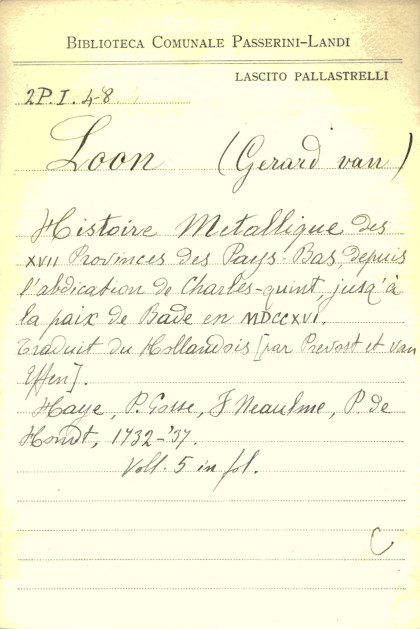 BIBLIOTECA COMUNALE PASSERINI-LANDI
LASCITO PALLASTRELLI
2P. I. 4-8
Loon (Gerard van)
Histoire Metallique des
XVII Provinces des Pays-Bas, depuis
l'abdication de Charles-quint, jusq'à
la paix de Bade en MDCCXVI.
Traduit du Hollandois [par Prevost et van
Effen].
Haye, P. Gosse, J Neaulme, P. de
Hondt, 1732-'37.
Voll. 5 in fol.
C